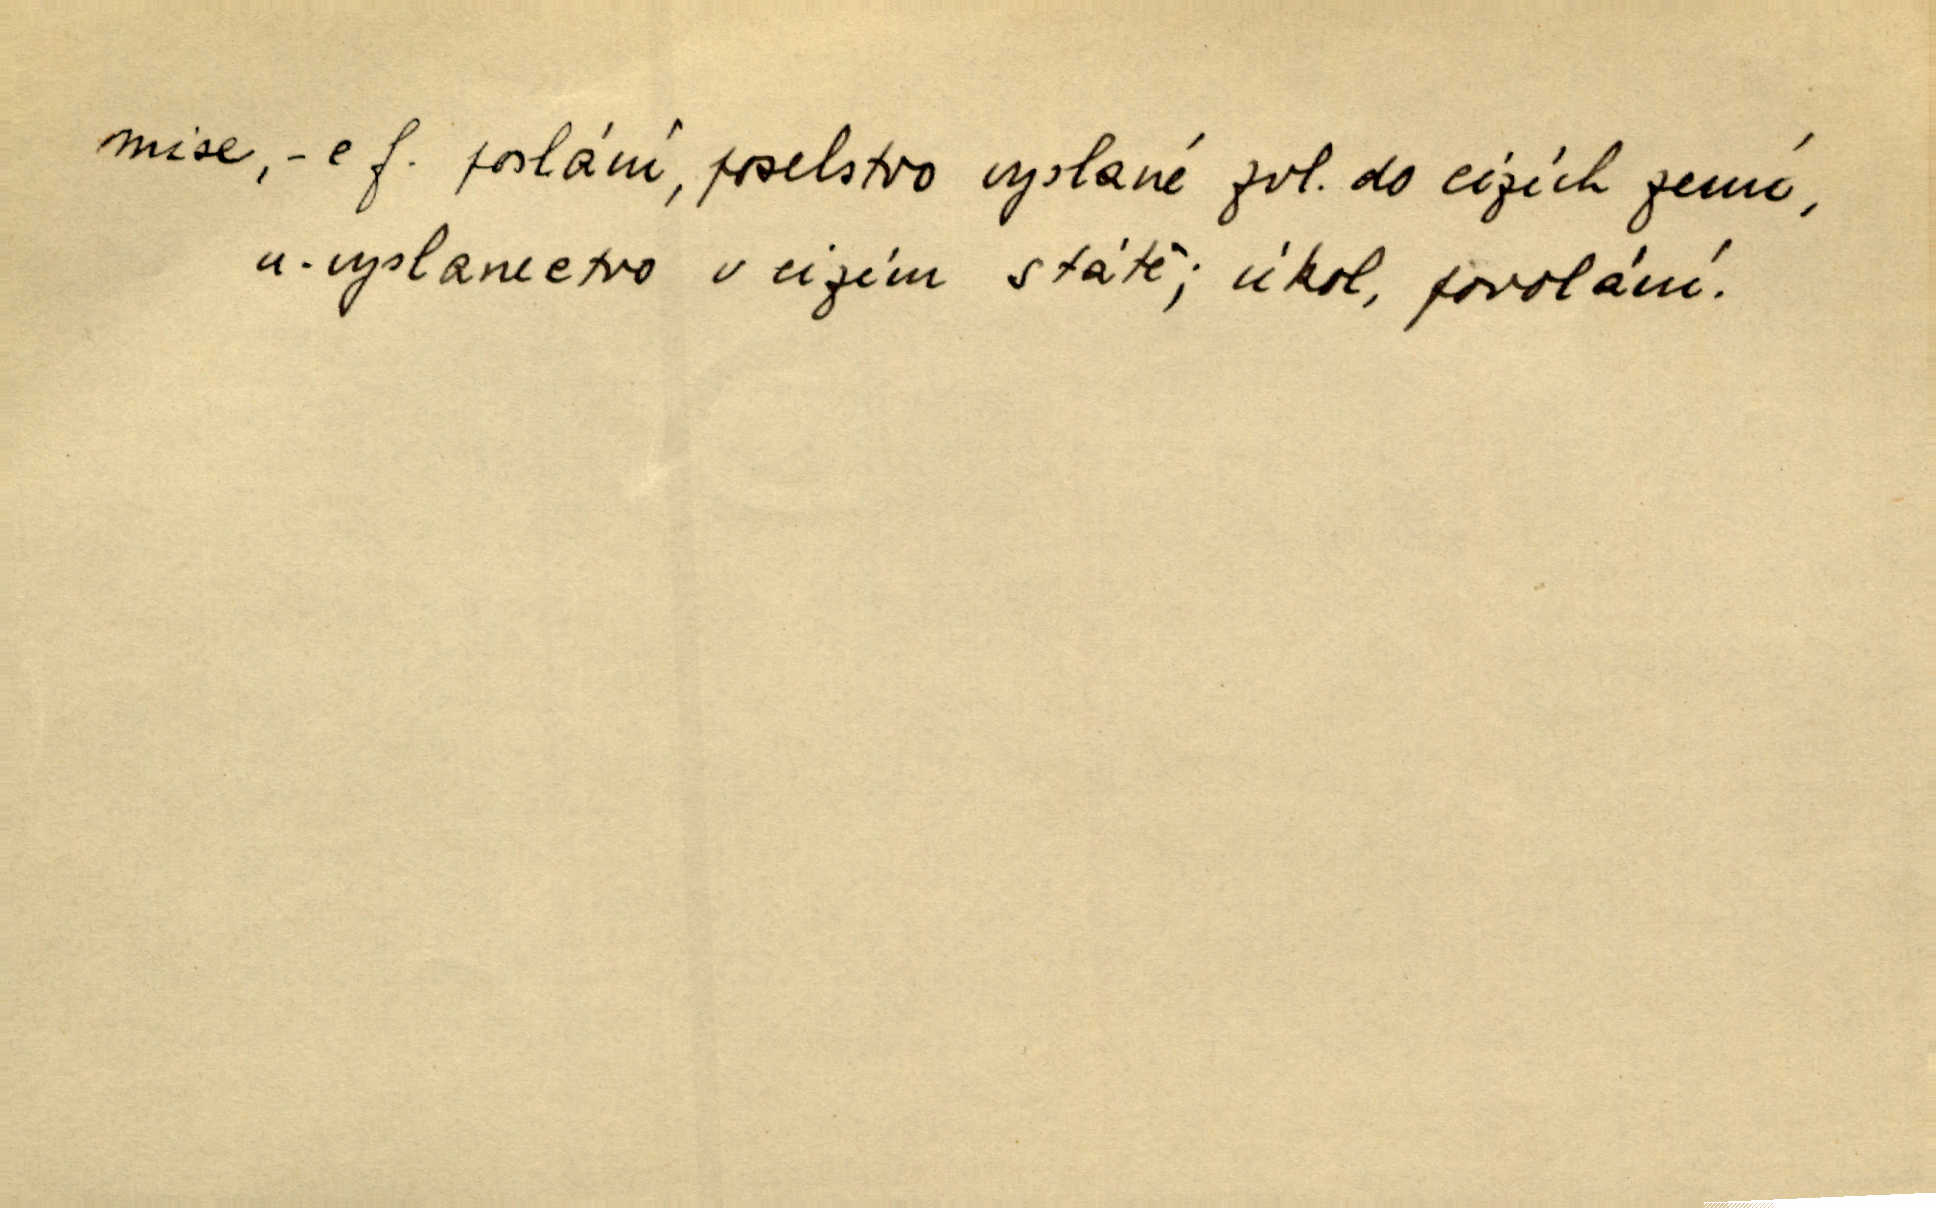 mise, -e f. poslání, poselstvo vyslané zvl. do cizích zemí,
n. vyslanectvo v cizím státě; úkol, povolání.